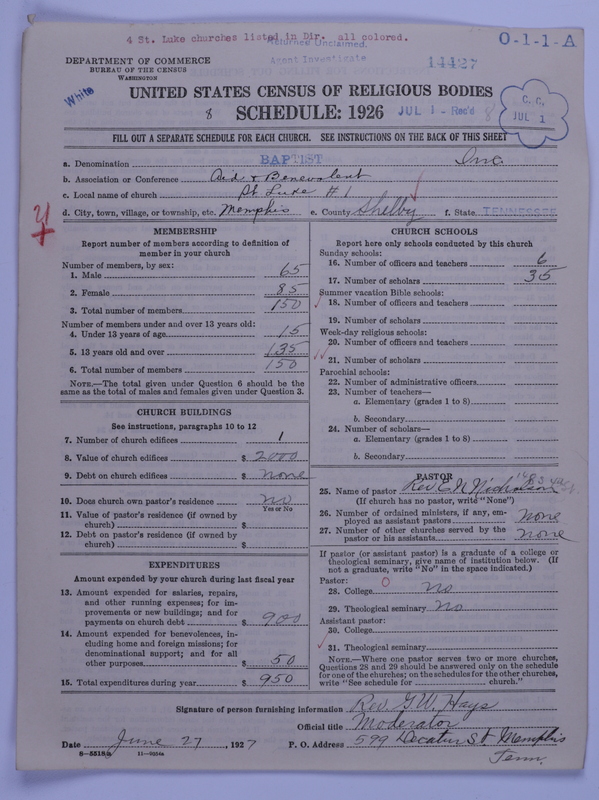 4 St. Luke churches listed in Dir. all colored.
Returned Unclaimed.
Agent Investigate
O-1-1-A
DEPARTMENT OF COMMERCE
BUREAU OF THE CENSUS
WASHINGTON
14427
White
UNITED STATES CENSUS OF RELIGIOUS BODIES
8 SCHEDULE: 1926 JUL 1 - Rec'd 8
C. C.
JUL 1
FILL OUT A SEPARATE SCHEDULE FOR EACH CHURCH. SEE INSTRUCTIONS ON THE BACK OF THIS SHEET
a. Denomination BAPTIST Inc
b. Association or Conference Aid & Benevolent
c. Local name of church St Luke #1
d. City, town, village, or township, etc. Memphis e. County Shelby f. State TENNESSEE
MEMBERSHIP
Report number of members according to definition of
member in your church
Number of members, by sex:
1. Male 65
2. Female 85
3. Total number of members 150
Number of members under and over 13 years old:
4. Under 13 years of age 15
5. 13 years old and over 135
6. Total number of members 150
NOTE.—The total given under Question 6 should be the
same as the total of males and females given under Question 3.
CHURCH BUILDINGS
See instructions, paragraphs 10 to 12
7. Number of church edifices 1
8. Value of church edifices $ 2000
9. Debt on church edifices $ none
10. Does church own pastor's residence no
Yes or No
11. Value of pastor's residence (if owned by
church) $
12. Debt on pastor's residence (if owned by
church) $
EXPENDITURES
Amount expended by your church during last fiscal year
13. Amount expended for salaries, repairs,
and other running expenses; for im-
provements or new buildings; and for
payments on church debt $ 900
14. Amount expended for benevolences, in-
cluding home and foreign missions; for
denominational support; and for all
other purposes $ 50
15. Total expenditures during year $ 950
CHURCH SCHOOLS
Report here only schools conducted by this church
Sunday schools:
16. Number of officers and teachers 6
17. Number of scholars 35
Summer vacation Bible schools:
18. Number of officers and teachers
19. Number of scholars
Week-day religious schools:
20. Number of officers and teachers
21. Number of scholars
Parochial schools:
22. Number of administrative officers
23. Number of teachers—
a. Elementary (grades 1 to 8)
b. Secondary
24. Number of scholars—
a. Elementary (grades 1 to 8)
b. Secondary
PASTOR
25. Name of pastor Rev E. N. Nicholson
(If church has no pastor, write "None")
26. Number of ordained ministers, if any, em-
ployed as assistant pastors none
27. Number of other churches served by the
pastor or his assistants none
If pastor (or assistant pastor) is a graduate of a college or
theological seminary, give name of institution below. (If
not a graduate, write "No" in the space indicated.)
Pastor:
28. College no
29. Theological seminary No
Assistant pastor:
30. College
31. Theological seminary
NOTE.—Where one pastor serves two or more churches,
Questions 28 and 29 should be answered only on the schedule
for one of the churches; on the schedules for the other churches,
write "See schedule for church."
Signature of person furnishing information Rev. G. W. Hays
Official title Moderator
Date June 27, 1927 P. O. Address 599 Decatur St Memphis
Tenn.
8-5518a 11-9034a